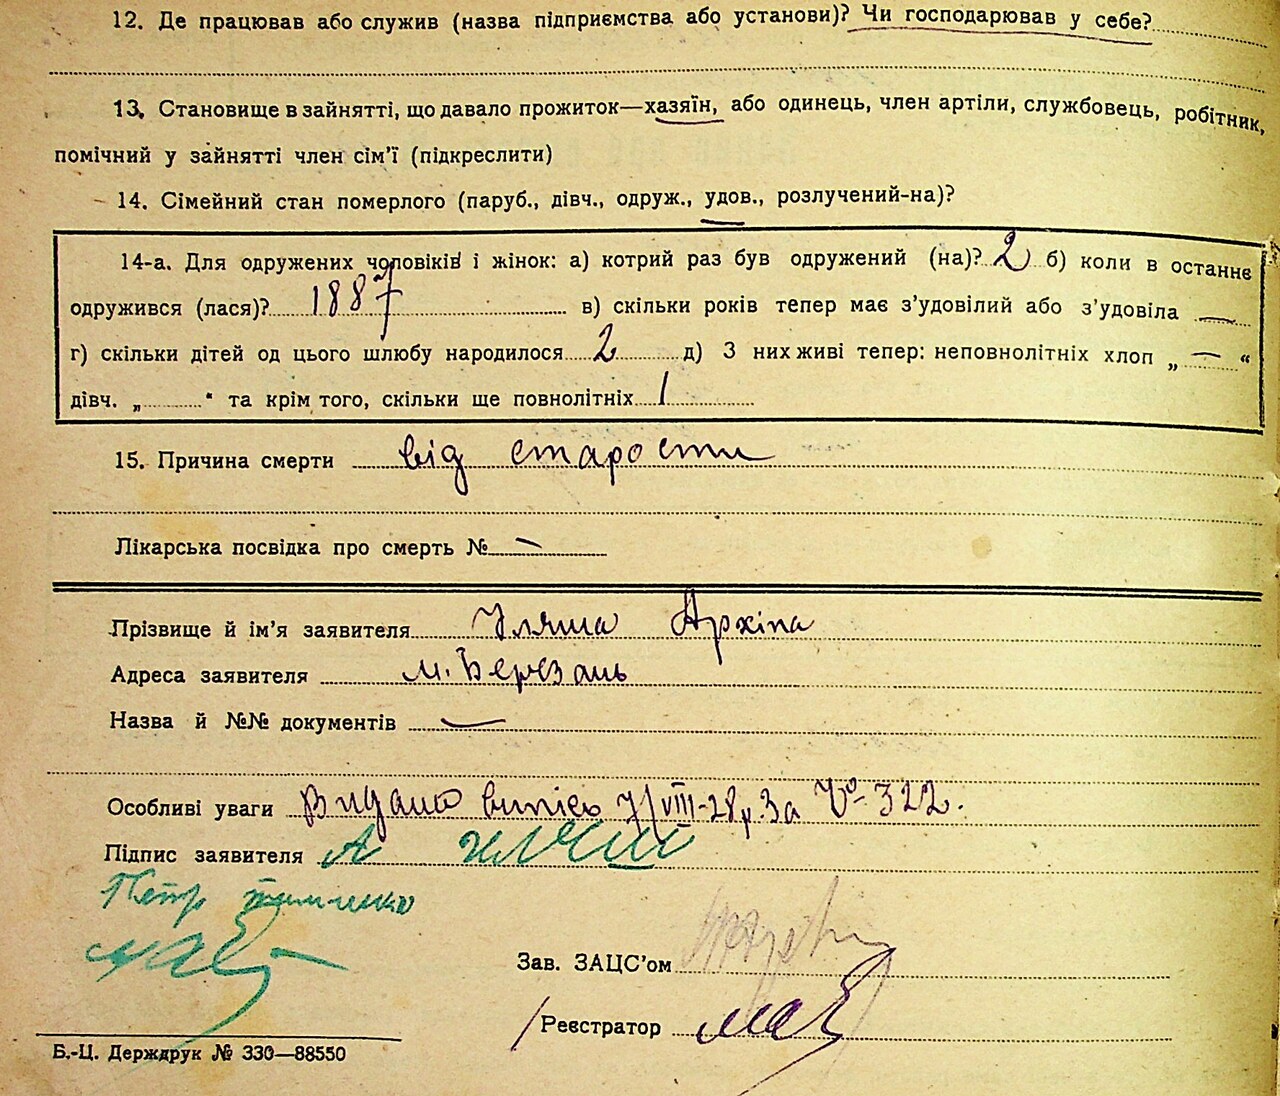 12. Де працював або служив (назва підприємства або установи)? Чи господарював у себе?
13. Становище в зайнятті, що давало прожиток—хазяїн, або одинець, член артіли, службовець, робітник,
помічний у зайнятті член сім'ї (підкреслити)
14. Сімейний стан померлого (паруб., дівч., одруж., удов., розлучений-на)?
14-а. Для одружених чоловіків і жінок: а) котрий раз був одружений (на)? 2 б) коли в останнє
одружився (лася)? 1887 в) скільки років тепер має з'удовілий або з'удовіла —
г) скільки дітей од цього шлюбу народилося 2 д) З них живі тепер: неповнолітніх хлоп „ — “
дівч. „ “ та крім того, скільки ще повнолітніх 1
15. Причина смерти від старости
Лікарська посвідка про смерть № —
Прізвище й ім'я заявителя Ілляша Архіпа
Адреса заявителя м. Березань
Назва й №№ документів —
Особливі уваги Видано випись 7/VIII-28р. за № 322.
Підпис заявителя А
Петр
Зав. ЗАЦС'ом
Реєстратор
Б.-Ц. Держдрук № 330—88550